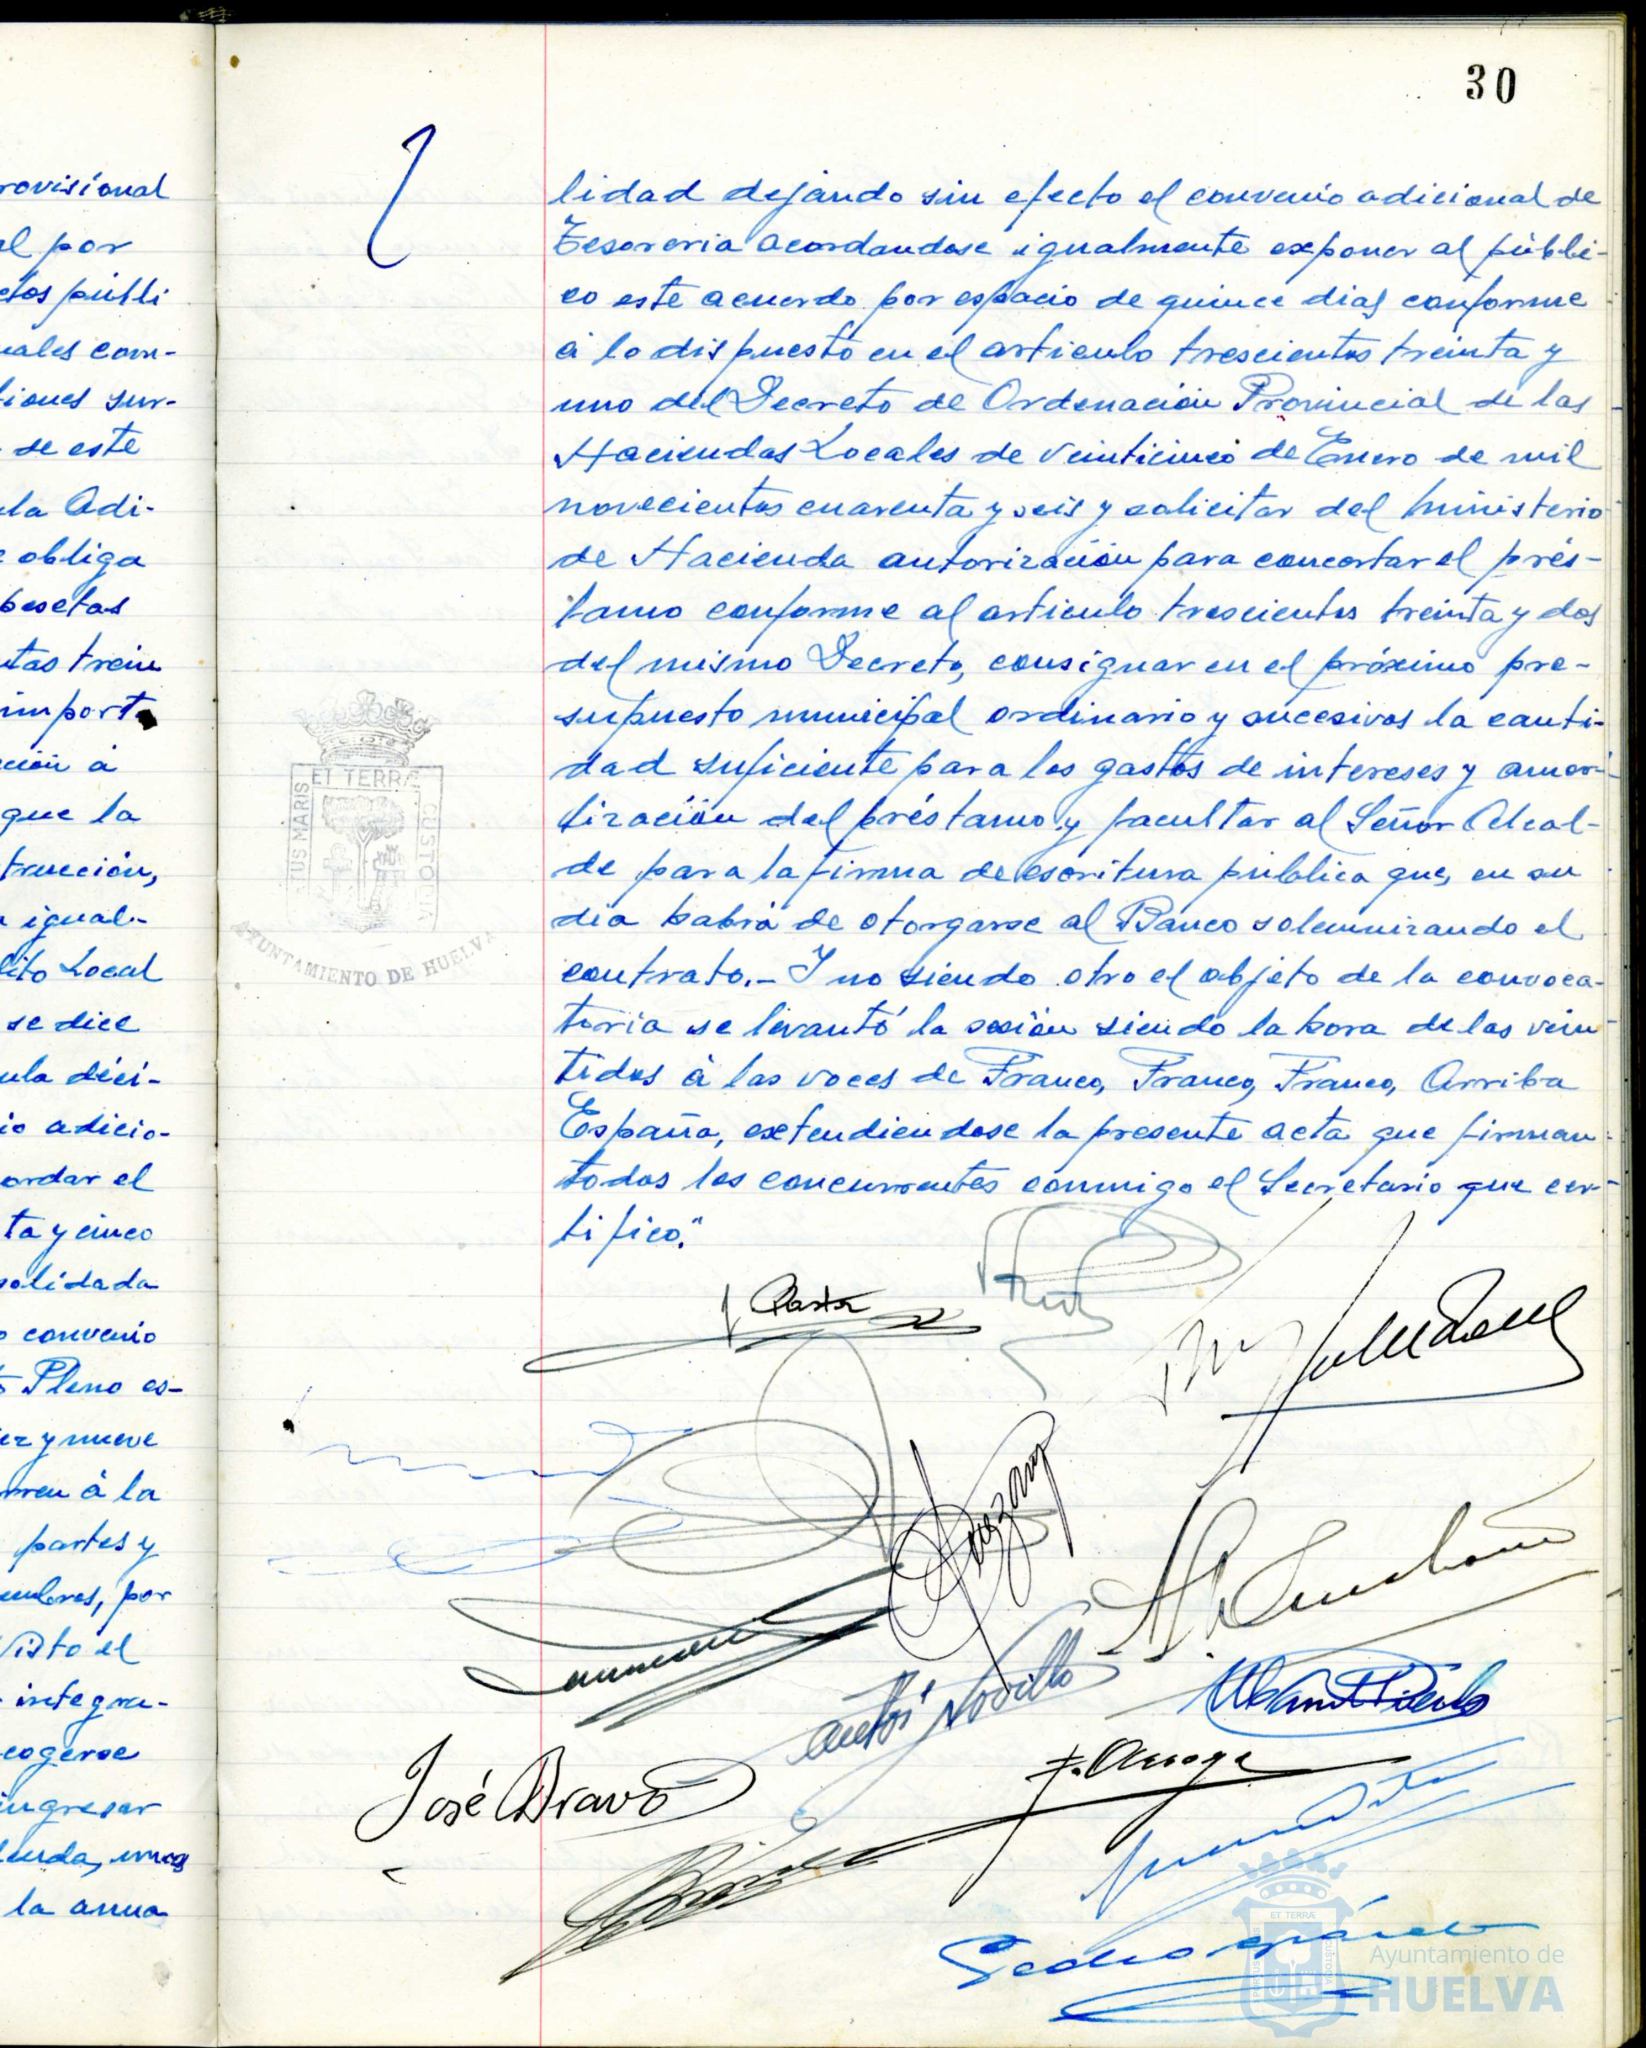 30
rovisional
el por
ctos públi
uales com-
tiones sur-
de este
ula Adi-
e obliga
pesetas
ntas trein
importe
ción á
que la
trucción,
igual-
dito Local
se dice
ula déci-
io adicio-
ordar el
ta y cinco
solidada
o convenio
Pleno es-
iez y nueve
rren á la
partes y
embres, por
Visto el
integra-
cogerse
ingresar
la anua
lidad dejando sin efecto el convenio adicional de
Tesoreria acordandose igualmente exponer al públi-
co este acuerdo por espacio de quince dias conforme
á lo dispuesto en el articulo trescientos treinta y
uno del Decreto de Ordenación Provincial de las
Haciendas Locales de veinticinco de Enero de mil
novecientos cuarenta y seis y solicitar del Ministerio
de Hacienda autorización para concertar el prés-
tamo conforme al articulo trescientos treinta y dos
del mismo Decreto, consignar en el próximo pre-
supuesto municipal ordinario y sucesivos la canti-
dad suficiente para los gastos de intereses y amor-
tización del préstamo y facultar al Señor Alcal-
de para la firma de escritura pública que, en su
dia habrá de otorgarse al Banco solemnizando el
contrato.- Y no siendo otro el objeto de la convoca-
toria se levantó la sesión siendo la hora de las vein
tidos á las voces de Franco, Franco, Franco, Arriba
España, extendiendose la presente acta que firman
todos los concurrentes conmigo el Secretario que cer-
tifico."
PORTUS MARIS
ET TERRÆ
CUSTODIA
AYUNTAMIENTO DE HUELVA
José Bravo
Ayuntamiento de
HUELVA